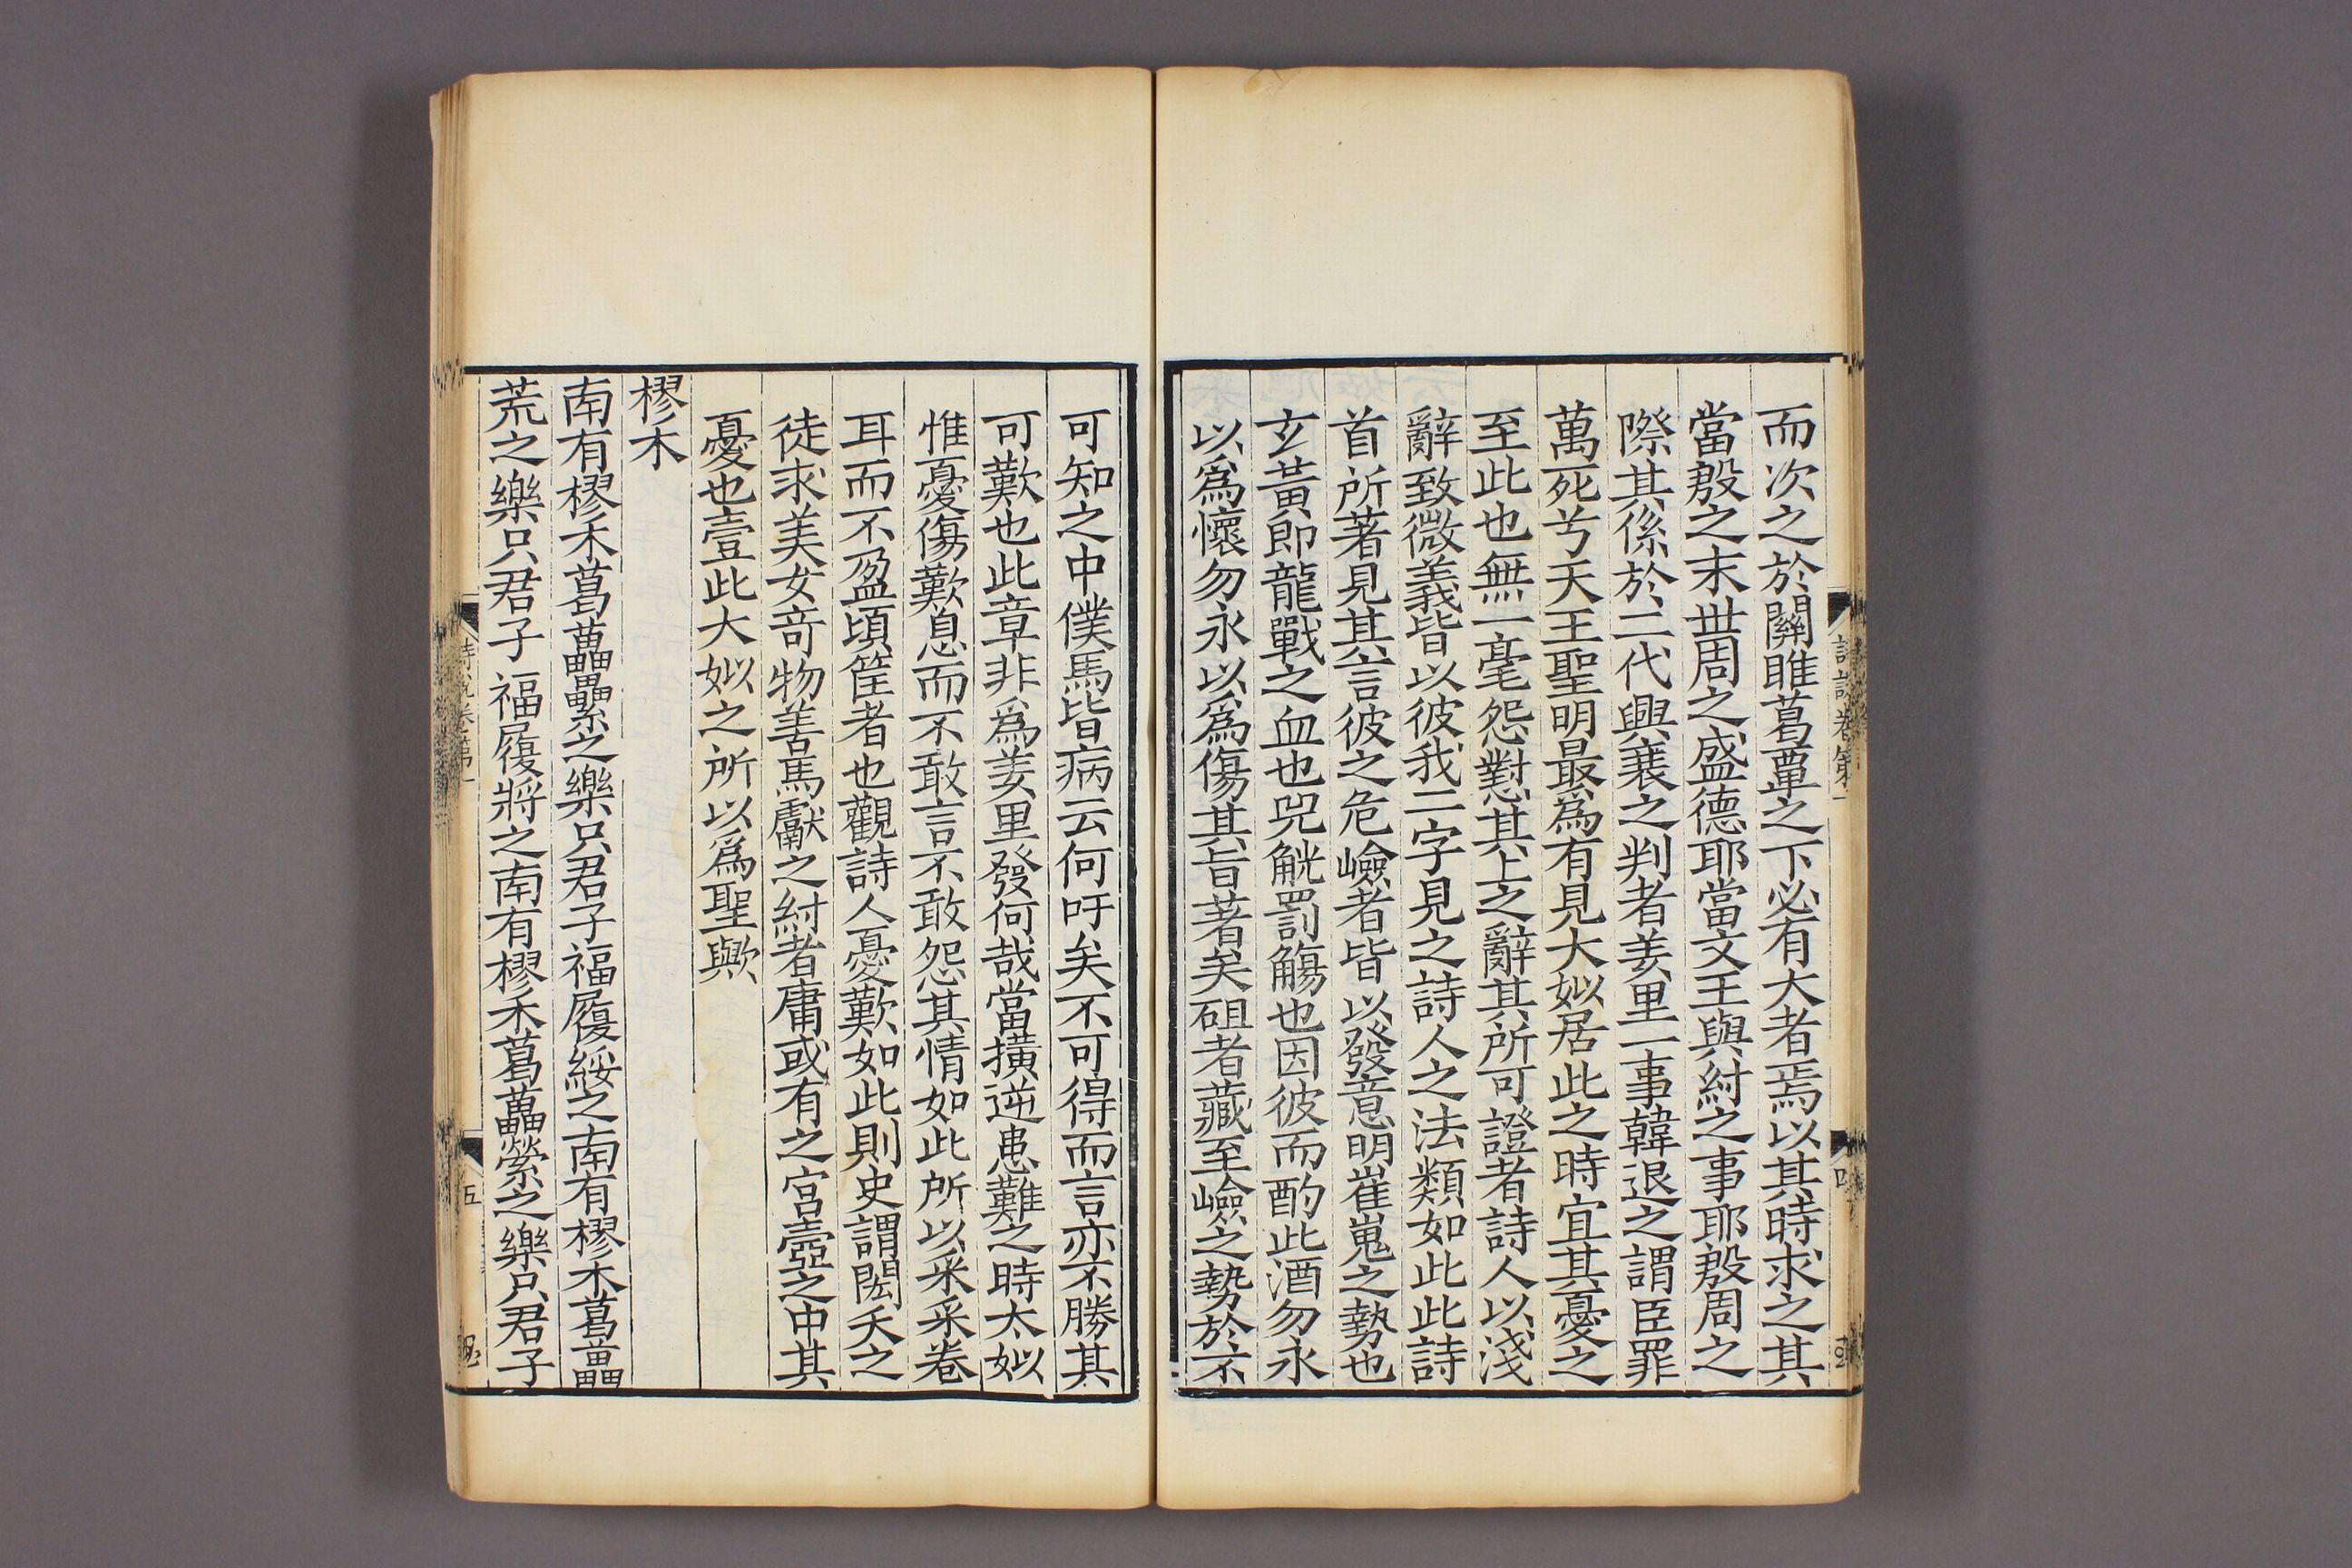 而次之於關雎葛覃之下必有大者焉以其時求之其
當殷之末世周之盛德耶當文王與紂之事耶殷周之
際其係於二代興衰之判者羑里一事韓退之謂臣罪
萬死兮天王聖明最為有見大姒居此之時宜其憂之
至此也無一毫怨懟其上之辭其所可證者詩人以淺
辭致微義皆以彼我二字見之詩人之法類如此此詩
首所著見其言彼之危嶮者皆以發意明崔嵬之勢也
玄黃即龍戰之血也兕觥罰觴也因彼而酌此酒勿永
以爲懷勿永以爲傷其旨著矣砠者藏至嶮之勢於不
詩說卷第一
四
可知之中僕馬皆病云何吁矣不可得而言亦不勝其
可歎也此章非爲羑里發何哉當橫逆患難之時太姒
惟憂傷歎息而不敢言不敢怨其情如此所以采采卷
耳而不盈頃筐者也觀詩人憂歎如此則史謂閎夭之
徒求美女奇物善馬獻之紂者庸或有之宮壼之中其
憂也壹此大姒之所以爲聖歟
樛木
南有樛木葛藟纍之樂只君子福履綏之南有樛木葛藟
荒之樂只君子福履將之南有樛木葛藟縈之樂只君子
詩說卷第一
五